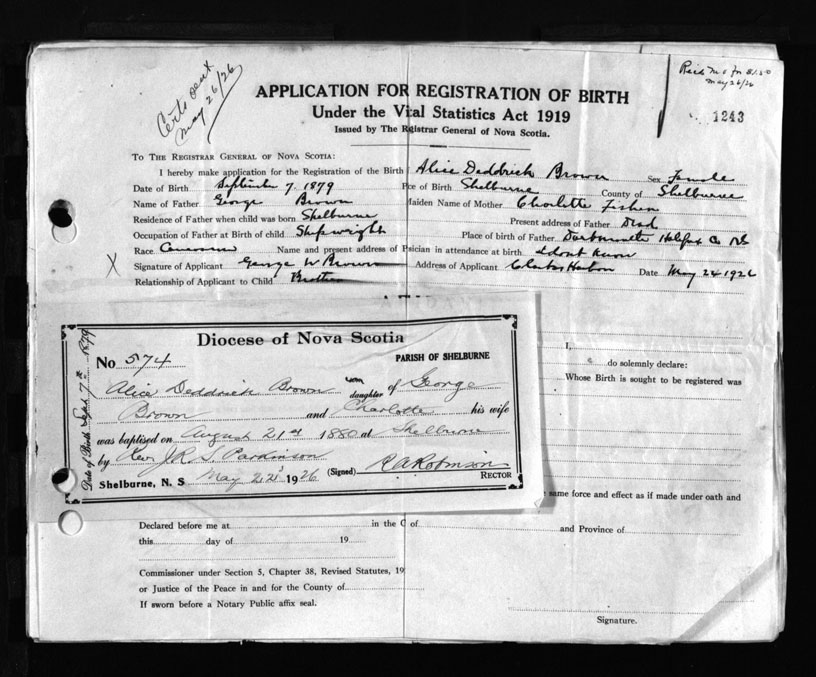 Certs sent
May 26/26
Recd M O for $1.50
May 26/26
1243
APPLICATION FOR REGISTRATION OF BIRTH
Under the Vital Statistics Act 1919
Issued by The Registrar General of Nova Scotia.
TO THE REGISTRAR GENERAL OF NOVA SCOTIA:
I hereby make application for the Registration of the Birth Alice Deddrick Brown Sex Female
Date of Birth September 7. 1879 Pce of Birth Shelburne County of Shelburne
Name of Father George Brown Maiden Name of Mother Charlotte Fisher
Residence of Father when child was born Shelburne Present address of Father Dead
Occupation of Father at Birth of child Shipwright Place of birth of Father Dartmouth Halifax Co NS
Race Name and present address of Psician in attendance at birth I dont know
X Signature of Applicant George W Brown Address of Applicant Clarks Harbor Date May 24 1926
Relationship of Applicant to Child Brother
Diocese of Nova Scotia
No 574 PARISH OF SHELBURNE
Alice Deddrick Brown son daughter of George
Brown and Charlotte his wife
was baptised on August 21st 1880 at Shelburne
by Rev J.R.S. Parkinson
Shelburne, N. S. May 22 1926 (Signed) R A Robinson
RECTOR
Date of Birth Sept 7th 1879
I,
do solemnly declare:
Whose Birth is sought to be registered was
same force and effect as if made under oath and
Declared before me at in the C of and Province of
this day of 19
Commissioner under Section 5, Chapter 38, Revised Statutes, 19
or Justice of the Peace in and for the County of
If sworn before a Notary Public affix seal.
Signature.